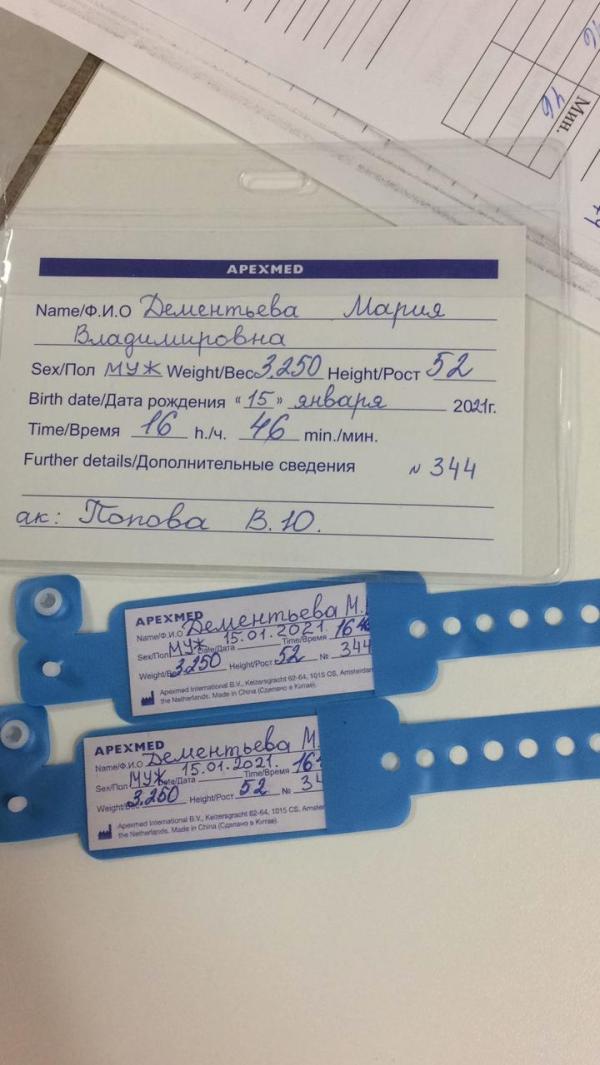 Мин.
46
APEXMED
Name/Ф.И.О Дементьева Мария
Владимировна
Sex/Пол муж Weight/Вес 3,250 Height/Рост 52
Birth date/Дата рождения «15» января 2021г.
Time/Время 16 h./ч. 46 min./мин.
Further details/Дополнительные сведения N 344
ак: Попова В.Ю.
APEXMED
Name/Ф.И.О Дементьева М.
Sex/Пол МУЖ Date/Дата 15.01.2021. Time/Время 16 46
Weight/Вес 3,250 Height/Рост 52 № 344
Apexmed International B.V., Keizersgracht 62-64, 1015 CS, Amsterdam
the Netherlands. Made in China (Сделано в Китае).
APEXMED
Name/Ф.И.О Дементьева М.
Sex/Пол МУЖ Date/Дата 15.01.2021. Time/Время 16
Weight/Вес 3,250 Height/Рост 52 № 34
Apexmed International B.V., Keizersgracht 62-64, 1015 CS, Amster
the Netherlands. Made in China (Сделано в Китае).